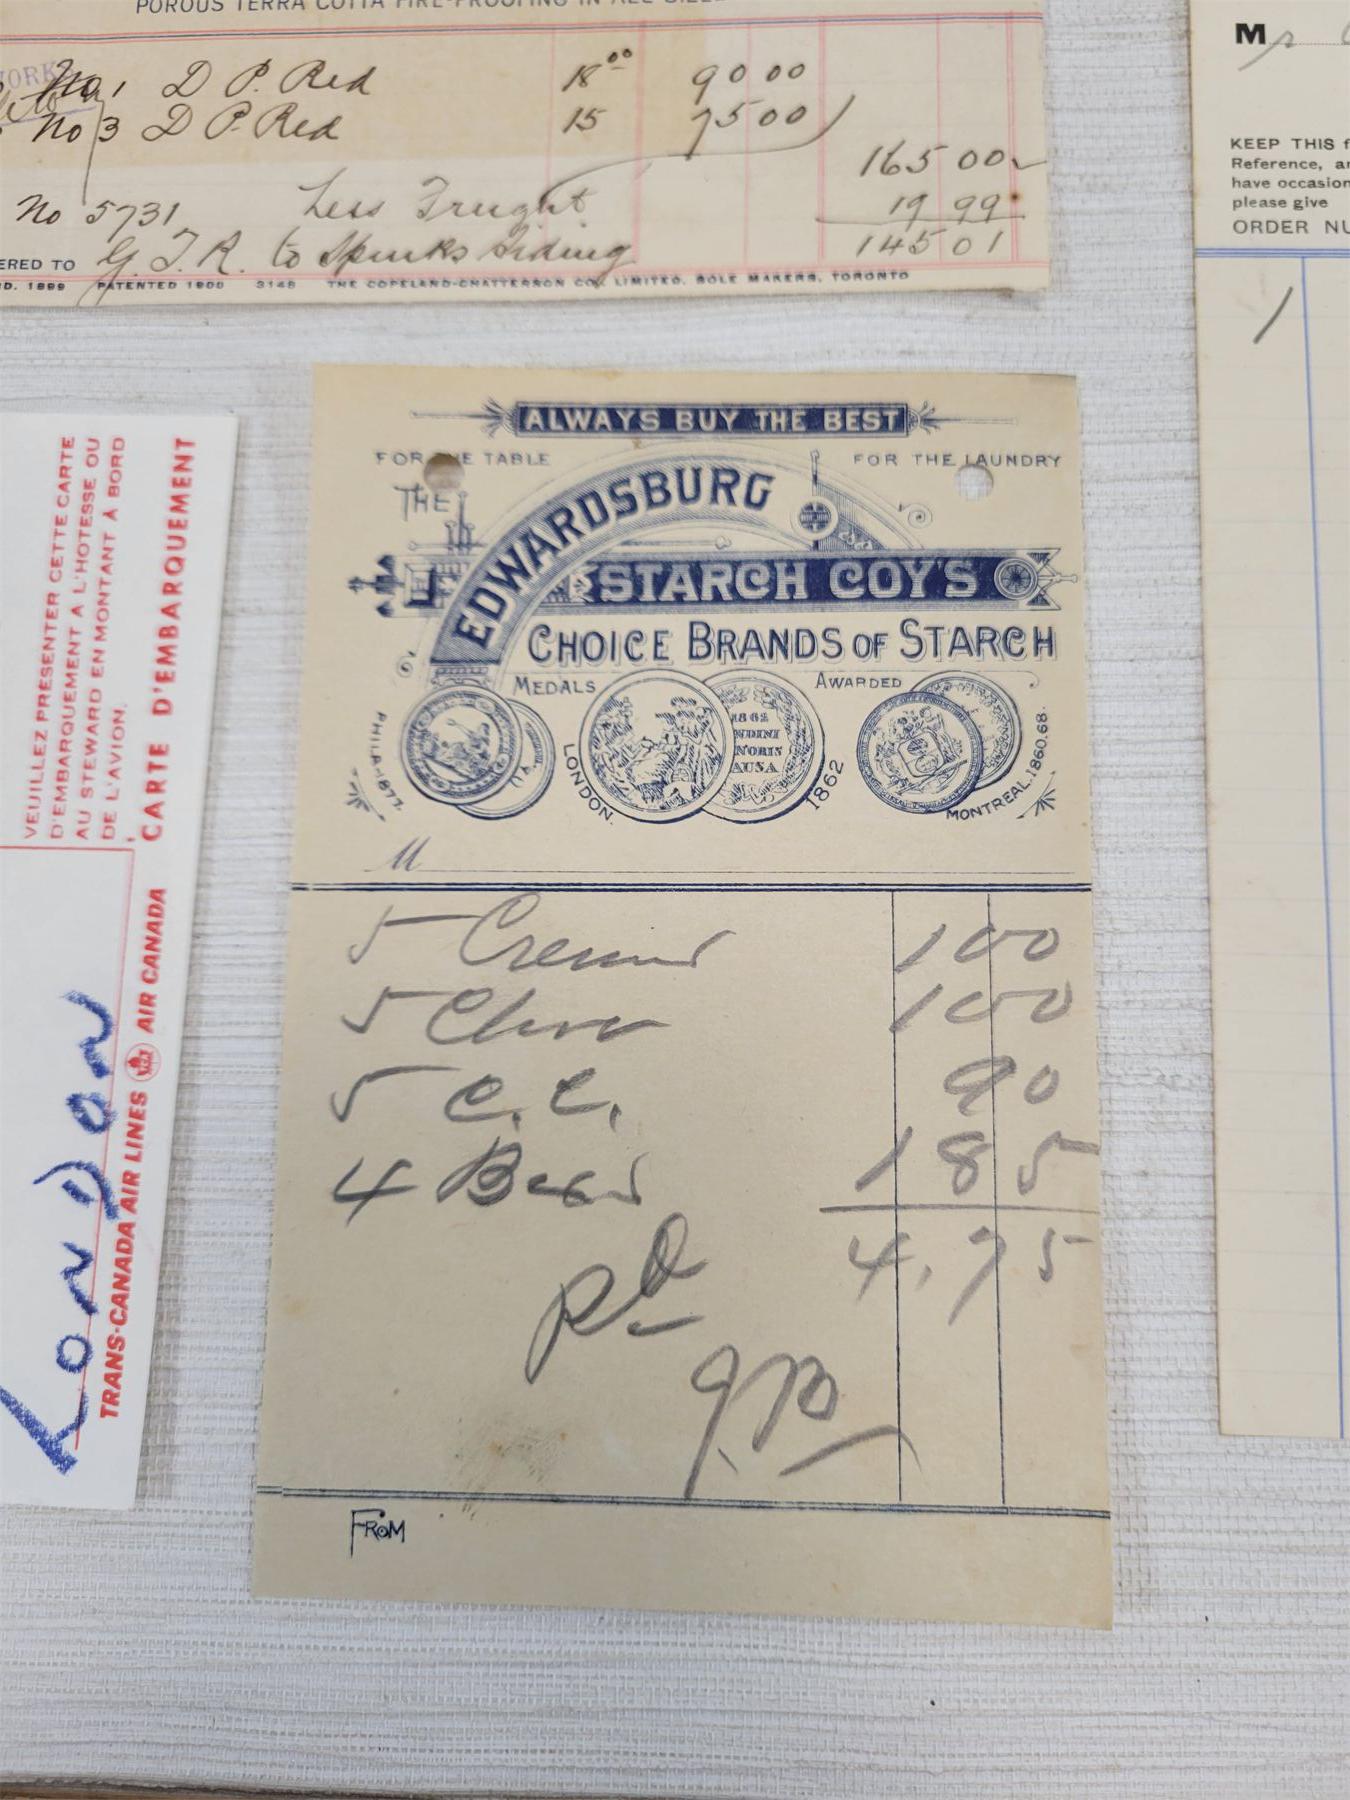 POROUS TERRA COTTA FIRE-PROOFING IN ALL SIZES
No 1 D P. Red 18⁰⁰ 90 00
No 3 D P. Red 15 75 00
165 00
No 5731 Less Freight 19 99
ERED TO G. T. R. to Spinks Siding 145 01
D. 1899 PATENTED 1900 3148 THE COPELAND-CHATTERSON CO., LIMITED, SOLE MAKERS, TORONTO
Mr
KEEP THIS f
Reference, an
have occasion
please give
ORDER NU
1
VEUILLEZ PRÉSENTER CETTE CARTE
D'EMBARQUEMENT À L'HÔTESSE OU
AU STEWARD EN MONTANT À BORD
DE L'AVION.
CARTE D'EMBARQUEMENT
TRANS-CANADA AIR LINES AIR CANADA
London
ALWAYS BUY THE BEST
FOR THE TABLE FOR THE LAUNDRY
THE
EDWARDSBURG
STARCH COY'S
CHOICE BRANDS OF STARCH
MEDALS AWARDED
PHILA-1877.
LONDON. 1862
1862
NDINI
NORIS
AUSA
MONTREAL.1860.68.
M
5 100
5 100
5 C. C. 90
4 185
4.75
Pd
FROM